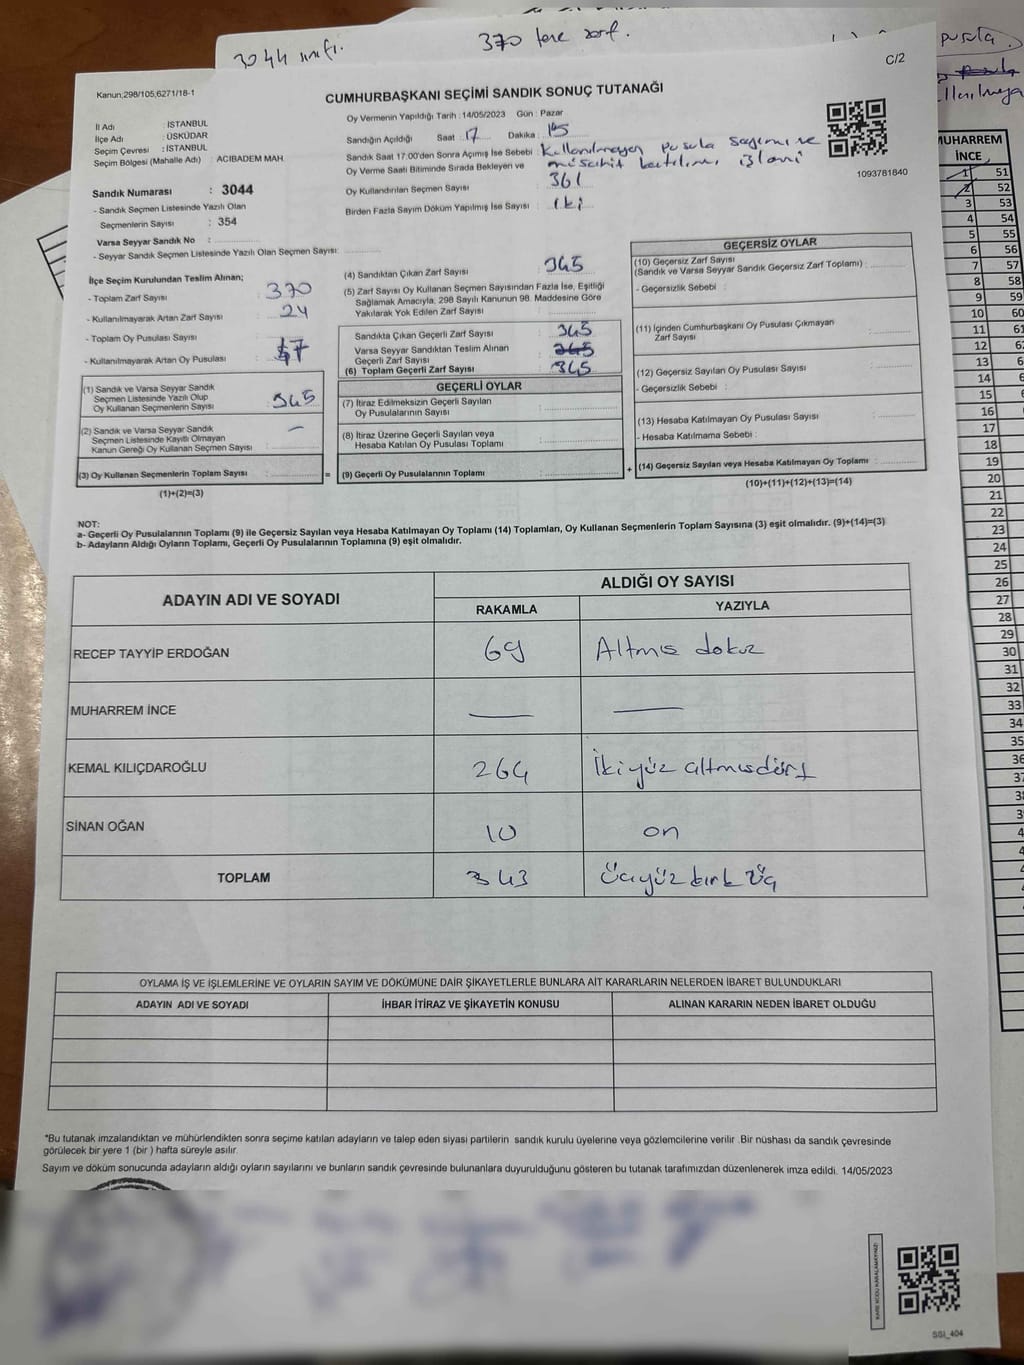 3044 sınıfı.
370 tane zarf.
pusula
C/2
Kanun;298/105,6271/18-1
CUMHURBAŞKANI SEÇİMİ SANDIK SONUÇ TUTANAĞI
İl Adı : İSTANBUL
İlçe Adı : ÜSKÜDAR
Seçim Çevresi : İSTANBUL
Seçim Bölgesi (Mahalle Adı) : ACIBADEM MAH.
Sandık Numarası : 3044
- Sandık Seçmen Listesinde Yazılı Olan
Seçmenlerin Sayısı : 354
Varsa Seyyar Sandık No :
- Seyyar Sandık Seçmen Listesinde Yazılı Olan Seçmen Sayısı:
Oy Vermenin Yapıldığı Tarih : 14/05/2023 Gün : Pazar
Sandığın Açıldığı Saat : 17 Dakika : 15
Sandık Saat 17:00'den Sonra Açımış İse Sebebi : Kullanılmayan pusula sayımı ve
müsahit katılımı işlemi
Oy Verme Saati Bitiminde Sırada Bekleyen ve
Oy Kullandırılan Seçmen Sayısı : 361
Birden Fazla Sayım Döküm Yapılmış İse Sayısı : iki
1093781840
İlçe Seçim Kurulundan Teslim Alınan;
- Toplam Zarf Sayısı : 370
- Kullanılmayarak Artan Zarf Sayısı : 24
- Toplam Oy Pusulası Sayısı :
- Kullanılmayarak Artan Oy Pusulası :
(1) Sandık ve Varsa Seyyar Sandık
Seçmen Listesinde Yazılı Olup
Oy Kullanan Seçmenlerin Sayısı : 345
(2) Sandık ve Varsa Seyyar Sandık
Seçmen Listesinde Kayıtlı Olmayan
Kanun Gereği Oy Kullanan Seçmen Sayısı : —
(3) Oy Kullanan Seçmenlerin Toplam Sayısı :
(1)+(2)=(3)
=
(4) Sandıktan Çıkan Zarf Sayısı : 345
(5) Zarf Sayısı Oy Kullanan Seçmen Sayısından Fazla İse, Eşitliği
Sağlamak Amacıyla, 298 Sayılı Kanunun 98. Maddesine Göre
Yakılarak Yok Edilen Zarf Sayısı :
Sandıkta Çıkan Geçerli Zarf Sayısı : 345
Varsa Seyyar Sandıktan Teslim Alınan
Geçerli Zarf Sayısı : 345
(6) Toplam Geçerli Zarf Sayısı : 345
GEÇERLİ OYLAR
(7) İtiraz Edilmeksizin Geçerli Sayılan
Oy Pusulalarının Sayısı :
(8) İtiraz Üzerine Geçerli Sayılan veya
Hesaba Katılan Oy Pusulası Toplamı :
(9) Geçerli Oy Pusulalarının Toplamı :
+
GEÇERSİZ OYLAR
(10) Geçersiz Zarf Sayısı
(Sandık ve Varsa Seyyar Sandık Geçersiz Zarf Toplamı) :
- Geçersizlik Sebebi :
(11) İçinden Cumhurbaşkanı Oy Pusulası Çıkmayan
Zarf Sayısı :
(12) Geçersiz Sayılan Oy Pusulası Sayısı :
- Geçersizlik Sebebi :
(13) Hesaba Katılmayan Oy Pusulası Sayısı :
- Hesaba Katılmama Sebebi :
(14) Geçersiz Sayılan veya Hesaba Katılmayan Oy Toplamı :
(10)+(11)+(12)+(13)=(14)
NOT:
a- Geçerli Oy Pusulalarının Toplamı (9) ile Geçersiz Sayılan veya Hesaba Katılmayan Oy Toplamı (14) Toplamları, Oy Kullanan Seçmenlerin Toplam Sayısına (3) eşit olmalıdır. (9)+(14)=(3)
b- Adayların Aldığı Oyların Toplamı, Geçerli Oy Pusulalarının Toplamına (9) eşit olmalıdır.
ADAYIN ADI VE SOYADI
ALDIĞI OY SAYISI
RAKAMLA YAZIYLA
RECEP TAYYİP ERDOĞAN 69 Altmıs dokuz
MUHARREM İNCE — —
KEMAL KILIÇDAROĞLU 264 İkiyüz altmısdört
SİNAN OĞAN 10 on
TOPLAM 343 Üçyüz kırk üç
OYLAMA İŞ VE İŞLEMLERİNE VE OYLARIN SAYIM VE DÖKÜMÜNE DAİR ŞİKAYETLERLE BUNLARA AİT KARARLARIN NELERDEN İBARET BULUNDUKLARI
ADAYIN ADI VE SOYADI İHBAR İTİRAZ VE ŞİKAYETİN KONUSU ALINAN KARARIN NEDEN İBARET OLDUĞU
*Bu tutanak imzalandıktan ve mühürlendikten sonra seçime katılan adayların ve talep eden siyasi partilerin sandık kurulu üyelerine veya gözlemcilerine verilir .Bir nüshası da sandık çevresinde
görülecek bir yere 1 (bir ) hafta süreyle asılır.
Sayım ve döküm sonucunda adayların aldığı oyların sayılarını ve bunların sandık çevresinde bulunanlara duyurulduğunu gösteren bu tutanak tarafımızdan düzenlenerek imza edildi. 14/05/2023
KARE KODU KARALAMAYINIZ!
SSI_404
MUHARREM
İNCE
1 51
2 52
3 53
4 54
5 55
6 56
7 57
8 58
9 59
10 60
11 61
12
13
14
15
16
17
18
19
20
21
22
23
24
25
26
27
28
29
30
31
32
33
34
35